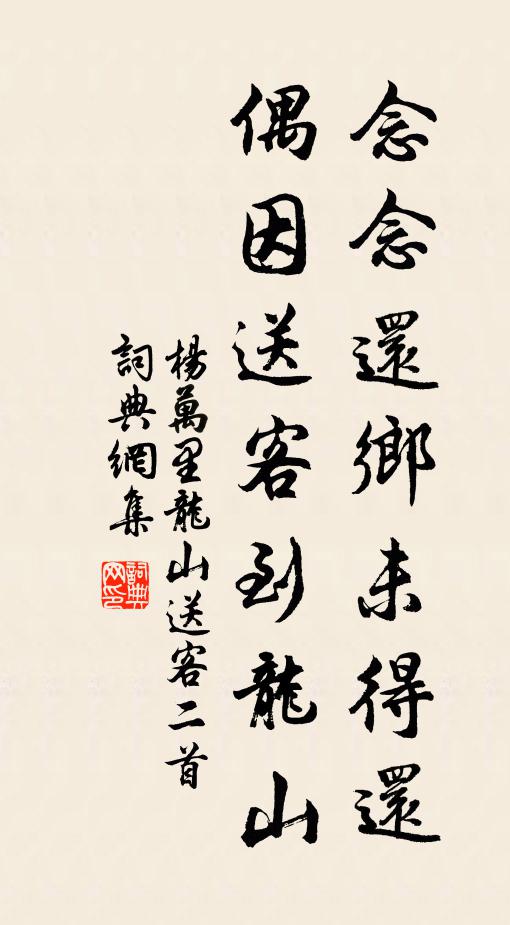 念念還鄉未得還
偶因送客到龍山
楊萬里龍山送客二首
詞典網集
詞典网印